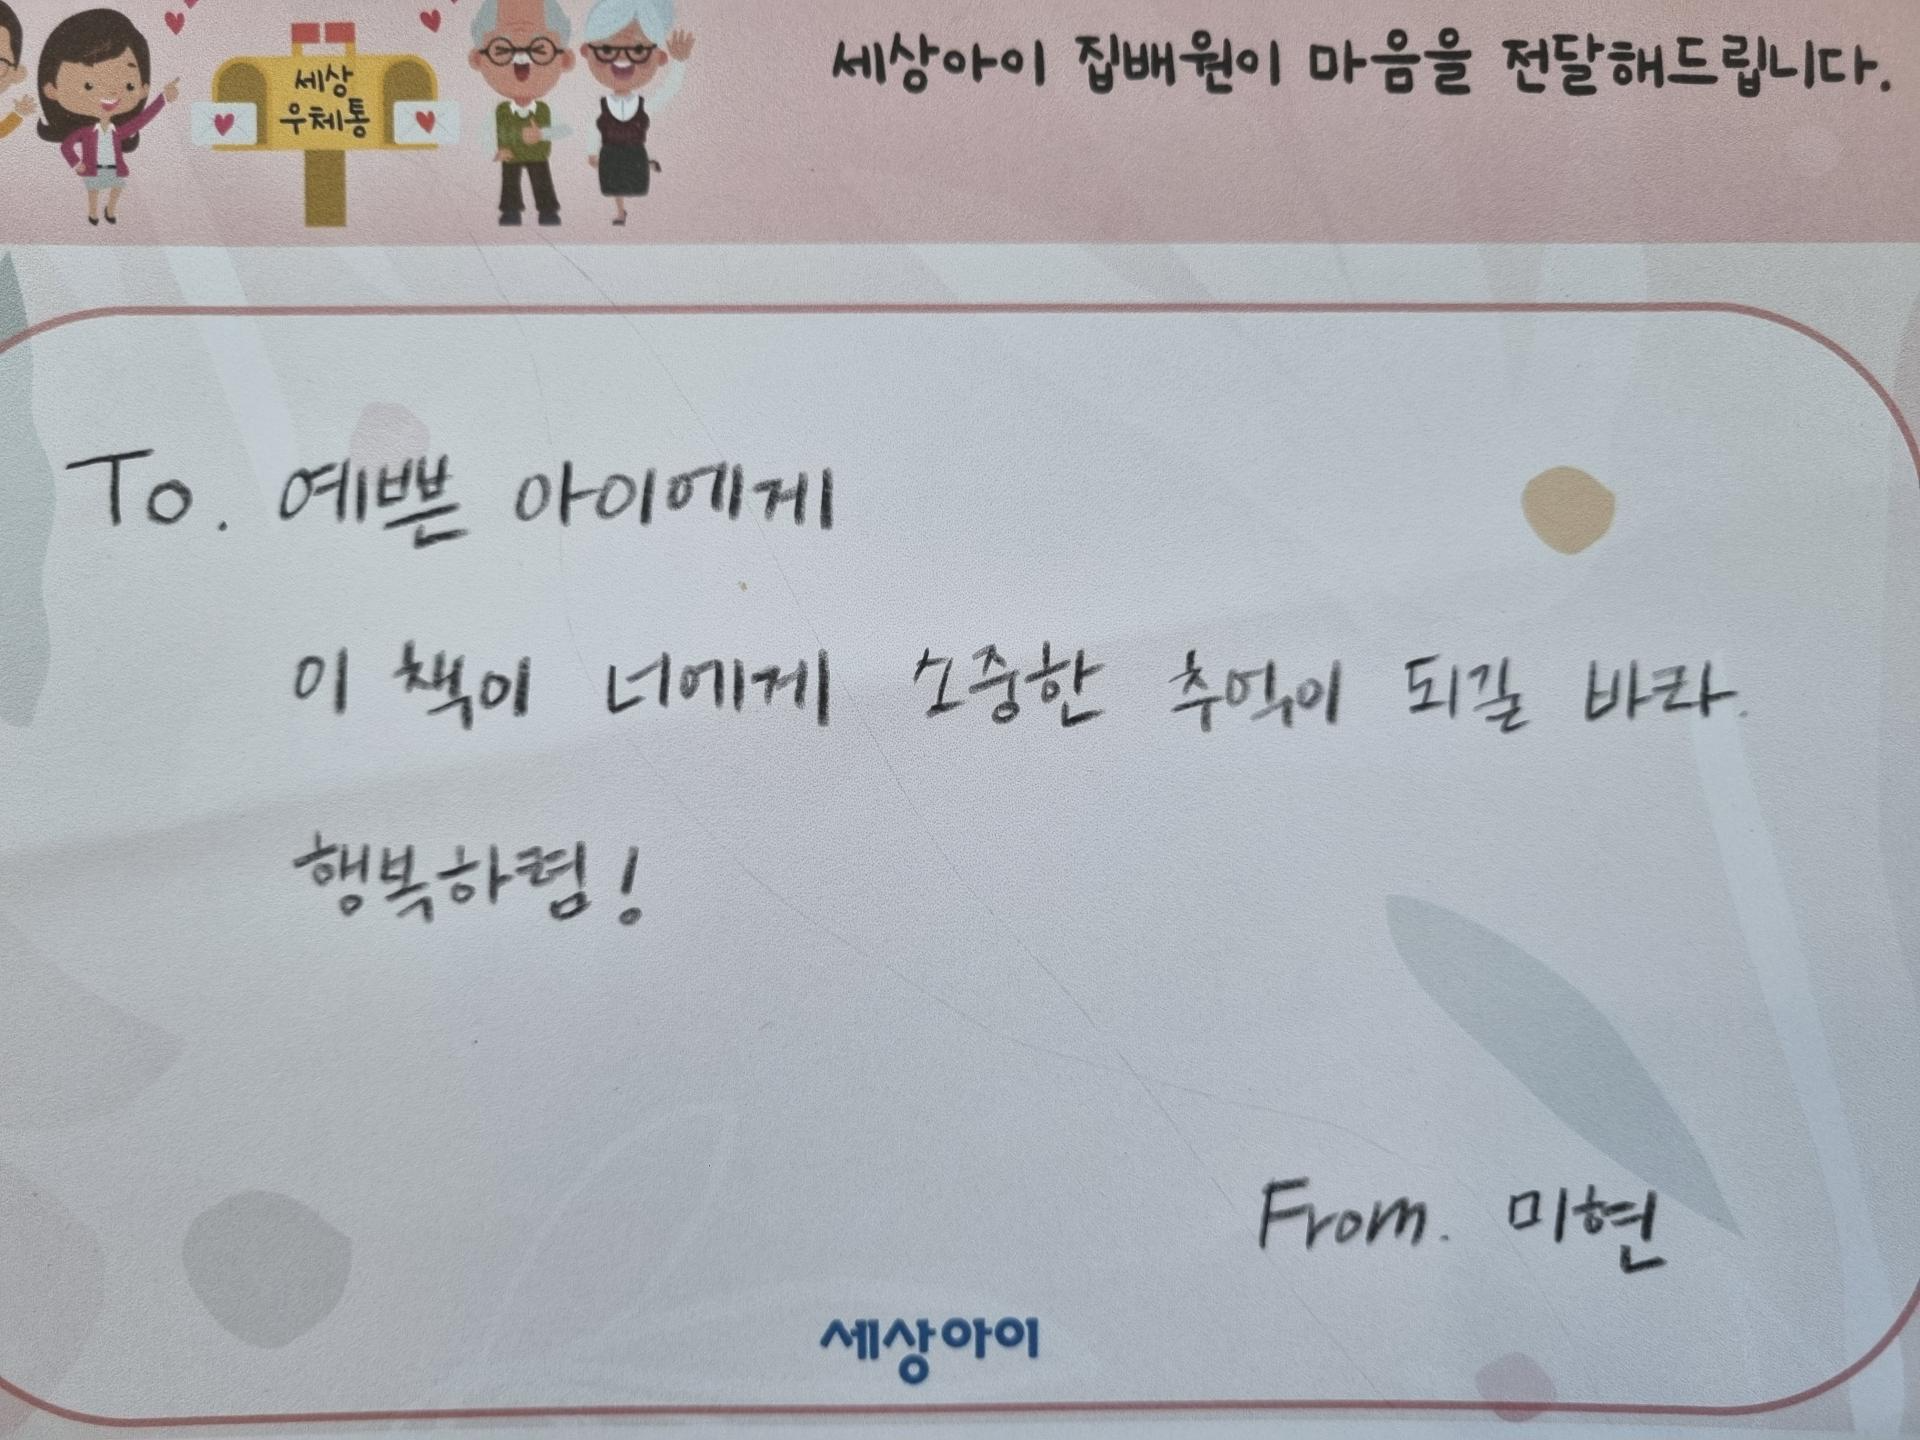 세상아이 집배원이 마음을 전달해드립니다.
세상
우체통
To. 예쁜 아이에게
이 책이 너에게 소중한 추억이 되길 바라.
행복하렴!
From. 미현
세상아이